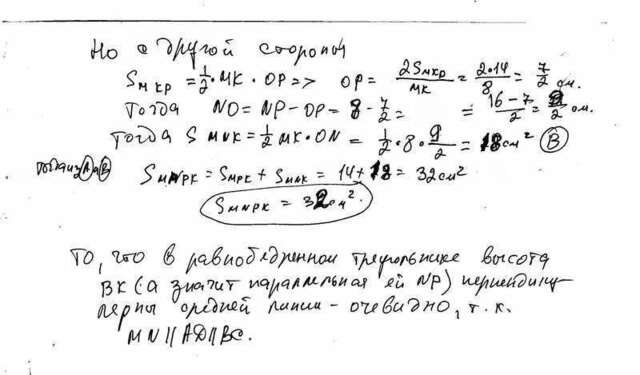 Но с другой стороны
S мкр = 1/2 · МК · ОР => ОР = 2Sмкр/МК = 2·14/8 = 7/2 см.
Тогда NO = NP - OP = 8 - 7/2 = = 16-7/2 = 9/2 см.
Тогда S MNK = 1/2 МК · ON = 1/2 · 8 · 9/2 = 18 см² (В)
тогда из (А) и (В) SMNPK = SMPK + SMNK = 14 + 18 = 32 см²
SMNPK = 32 см².
То, что в равнобедренном треугольнике высота
ВК (а значит параллельная ей NP) перпендику-
лярны средней линии - очевидно, т.к.
MN||AD||BC.